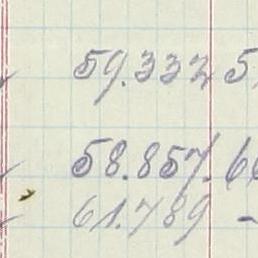 59.332 5
58.857.66
61.789 -